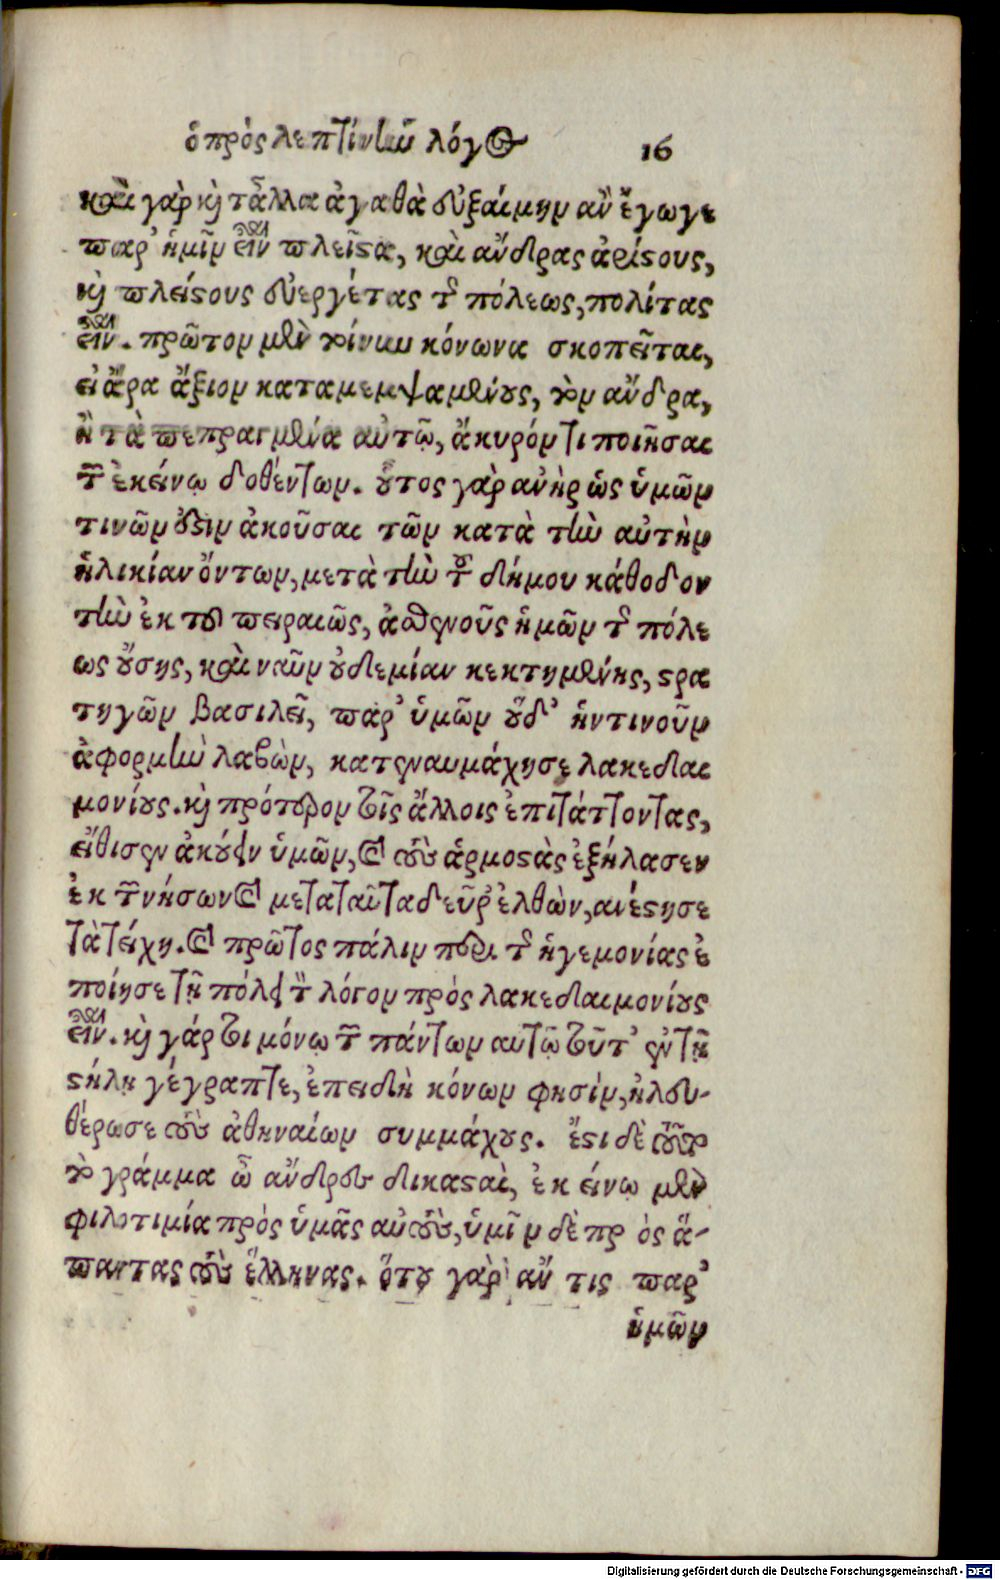 ὁ πρὸς λεπτίνην λόγος 16
καὶ γὰρ καὶ τἆλλα ἀγαθὰ εὐξαίμην ἂν ἔγωγε
παρ' ἡμῖν εἶναι πλεῖστα, καὶ ἄνδρας ἀρίστους,
καὶ πλείστους εὐεργέτας τῆς πόλεως, πολίτας
εἶναι. πρῶτον μὲν τοίνυν κόνωνα σκοπεῖται,
εἰ ἄρα ἄξιον καταμεμψαμένους, τὸν ἄνδρα,
ἢ τὰ πεπραγμένα αὐτῷ, ἄκυρόν τι ποιῆσαι
τῶν ἐκείνῳ δοθέντων. οὗτος γὰρ ἀνὴρ ὡς ὑμῶν
τινῶν ἔστιν ἀκοῦσαι τῶν κατὰ τὴν αὐτὴν
ἡλικίαν ὄντων, μετὰ τὴν τοῦ δήμου κάθοδον
τὴν ἐκ τοῦ πειραιῶς, ἀσθενοῦς ἡμῶν τῆς πόλε
ως οὔσης, καὶ ναῦν οὐδεμίαν κεκτημένης, στρα
τηγῶν βασιλεῖ, παρ' ὑμῶν οὐδ' ἡντινοῦν
ἀφορμὴν λαβὼν, κατεναυμάχησε λακεδαι
μονίους. καὶ πρότερον τοῖς ἄλλοις ἐπιτάττοντας,
εἴθισεν ἀκούειν ὑμῶν, καὶ τοὺς ἁρμοστὰς ἐξήλασεν
ἐκ τῶν νήσων καὶ μετα ταῦτα δεῦρ' ἐλθὼν, ἀνέστησε
τὰ τείχη. καὶ πρῶτος πάλιν περὶ τῆς ἡγεμονίας ἐ
ποίησε τῇ πόλει τὸν λόγον πρὸς λακεδαιμονίους
εἶναι. καὶ γάρ τοι μόνῳ τῶν πάντων αὐτῷ τοῦτ' ἐν τῇ
στήλῃ γέγραπται, ἐπειδὴ κόνων φησὶν, ἠλευ-
θέρωσε τοὺς ἀθηναίων συμμάχους. ἔστι δὲ τοῦτο
τὸ γράμμα ὦ ἄνδρες δικασταὶ, ἐκείνῳ μὲν
φιλοτιμία πρὸς ὑμᾶς αὐτοὺς, ὑμῖν δὲ πρὸς ἅ-
παντας τοὺς ἕλληνας. ὅτου γὰρ ἄν τις παρ'
ὑμῶν
Digitalisierung gefördert durch die Deutsche Forschungsgemeinschaft - DFG